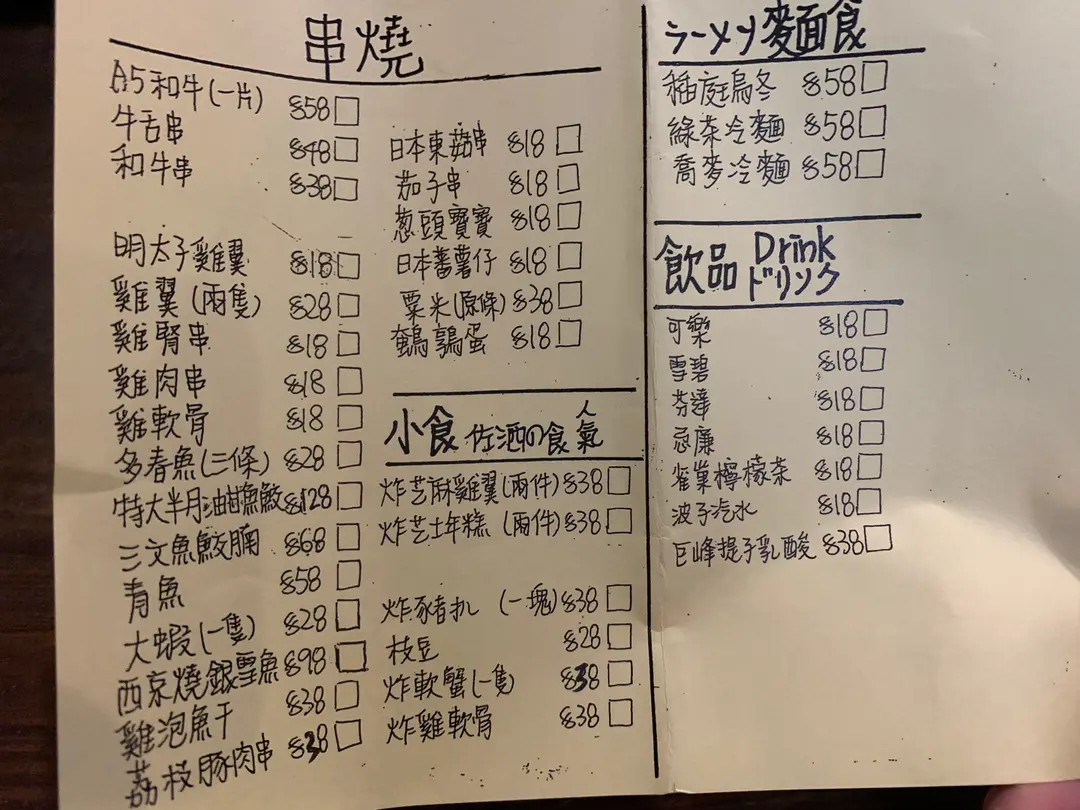 串燒
A5和牛(一片) $58
牛舌串 $48
和牛串 $38
明太子雞翼 $18
雞翼(兩隻) $28
雞腎串 $18
雞肉串 $18
雞軟骨 $18
多春魚(三條) $28
特大半月油甘魚鮫 $128
三文魚鮫腩 $68
青魚 $58
大蝦(一隻) $28
西京燒銀雪魚 $98
雞泡魚干 $38
荔枝豚肉串 $38
日本東菇串 $18
茄子串 $18
葱頭寶寶 $18
日本蕃薯仔 $18
粟米(原條) $38
鵪鶉蛋 $18
小食 佐酒の人氣食
炸芝麻雞翼(兩件) $38
炸芝士年糕(兩件) $38
炸豬扒(一塊) $38
枝豆 $28
炸軟蟹(一隻) $38
炸雞軟骨 $38
ラーメン麵食
稲庭烏冬 $58
綠茶冷麵 $58
喬麥冷麵 $58
飲品 Drink ドリンク
可樂 $18
雪碧 $18
芬達 $18
忌廉 $18
雀巢檸檬茶 $18
波子汽水 $18
巨峰提子乳酸 $38